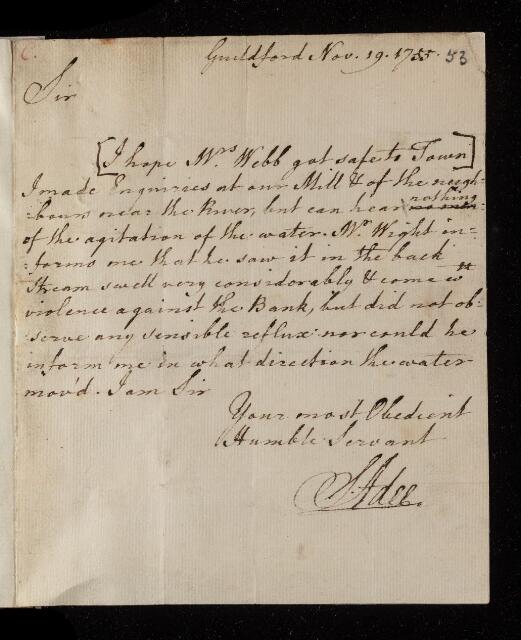 C.
Guildford Nov. 19. 1755. 53
Sir
[I hope Mrs Webb got safe to Town]
I made Enquiries at our Mill & of the neigh-
-bours near the River, but can hear nothing
of the agitation of the water. Mr. Wight in-
-forms me that he saw it in the back
Stream swell very considerably & come wth
violence against the Bank, but did not ob-
serve any sensible reflux nor could he
inform me in what direction the water
mov'd. I am Sir
Your most Obedient
Humble Servant
S: Adee.